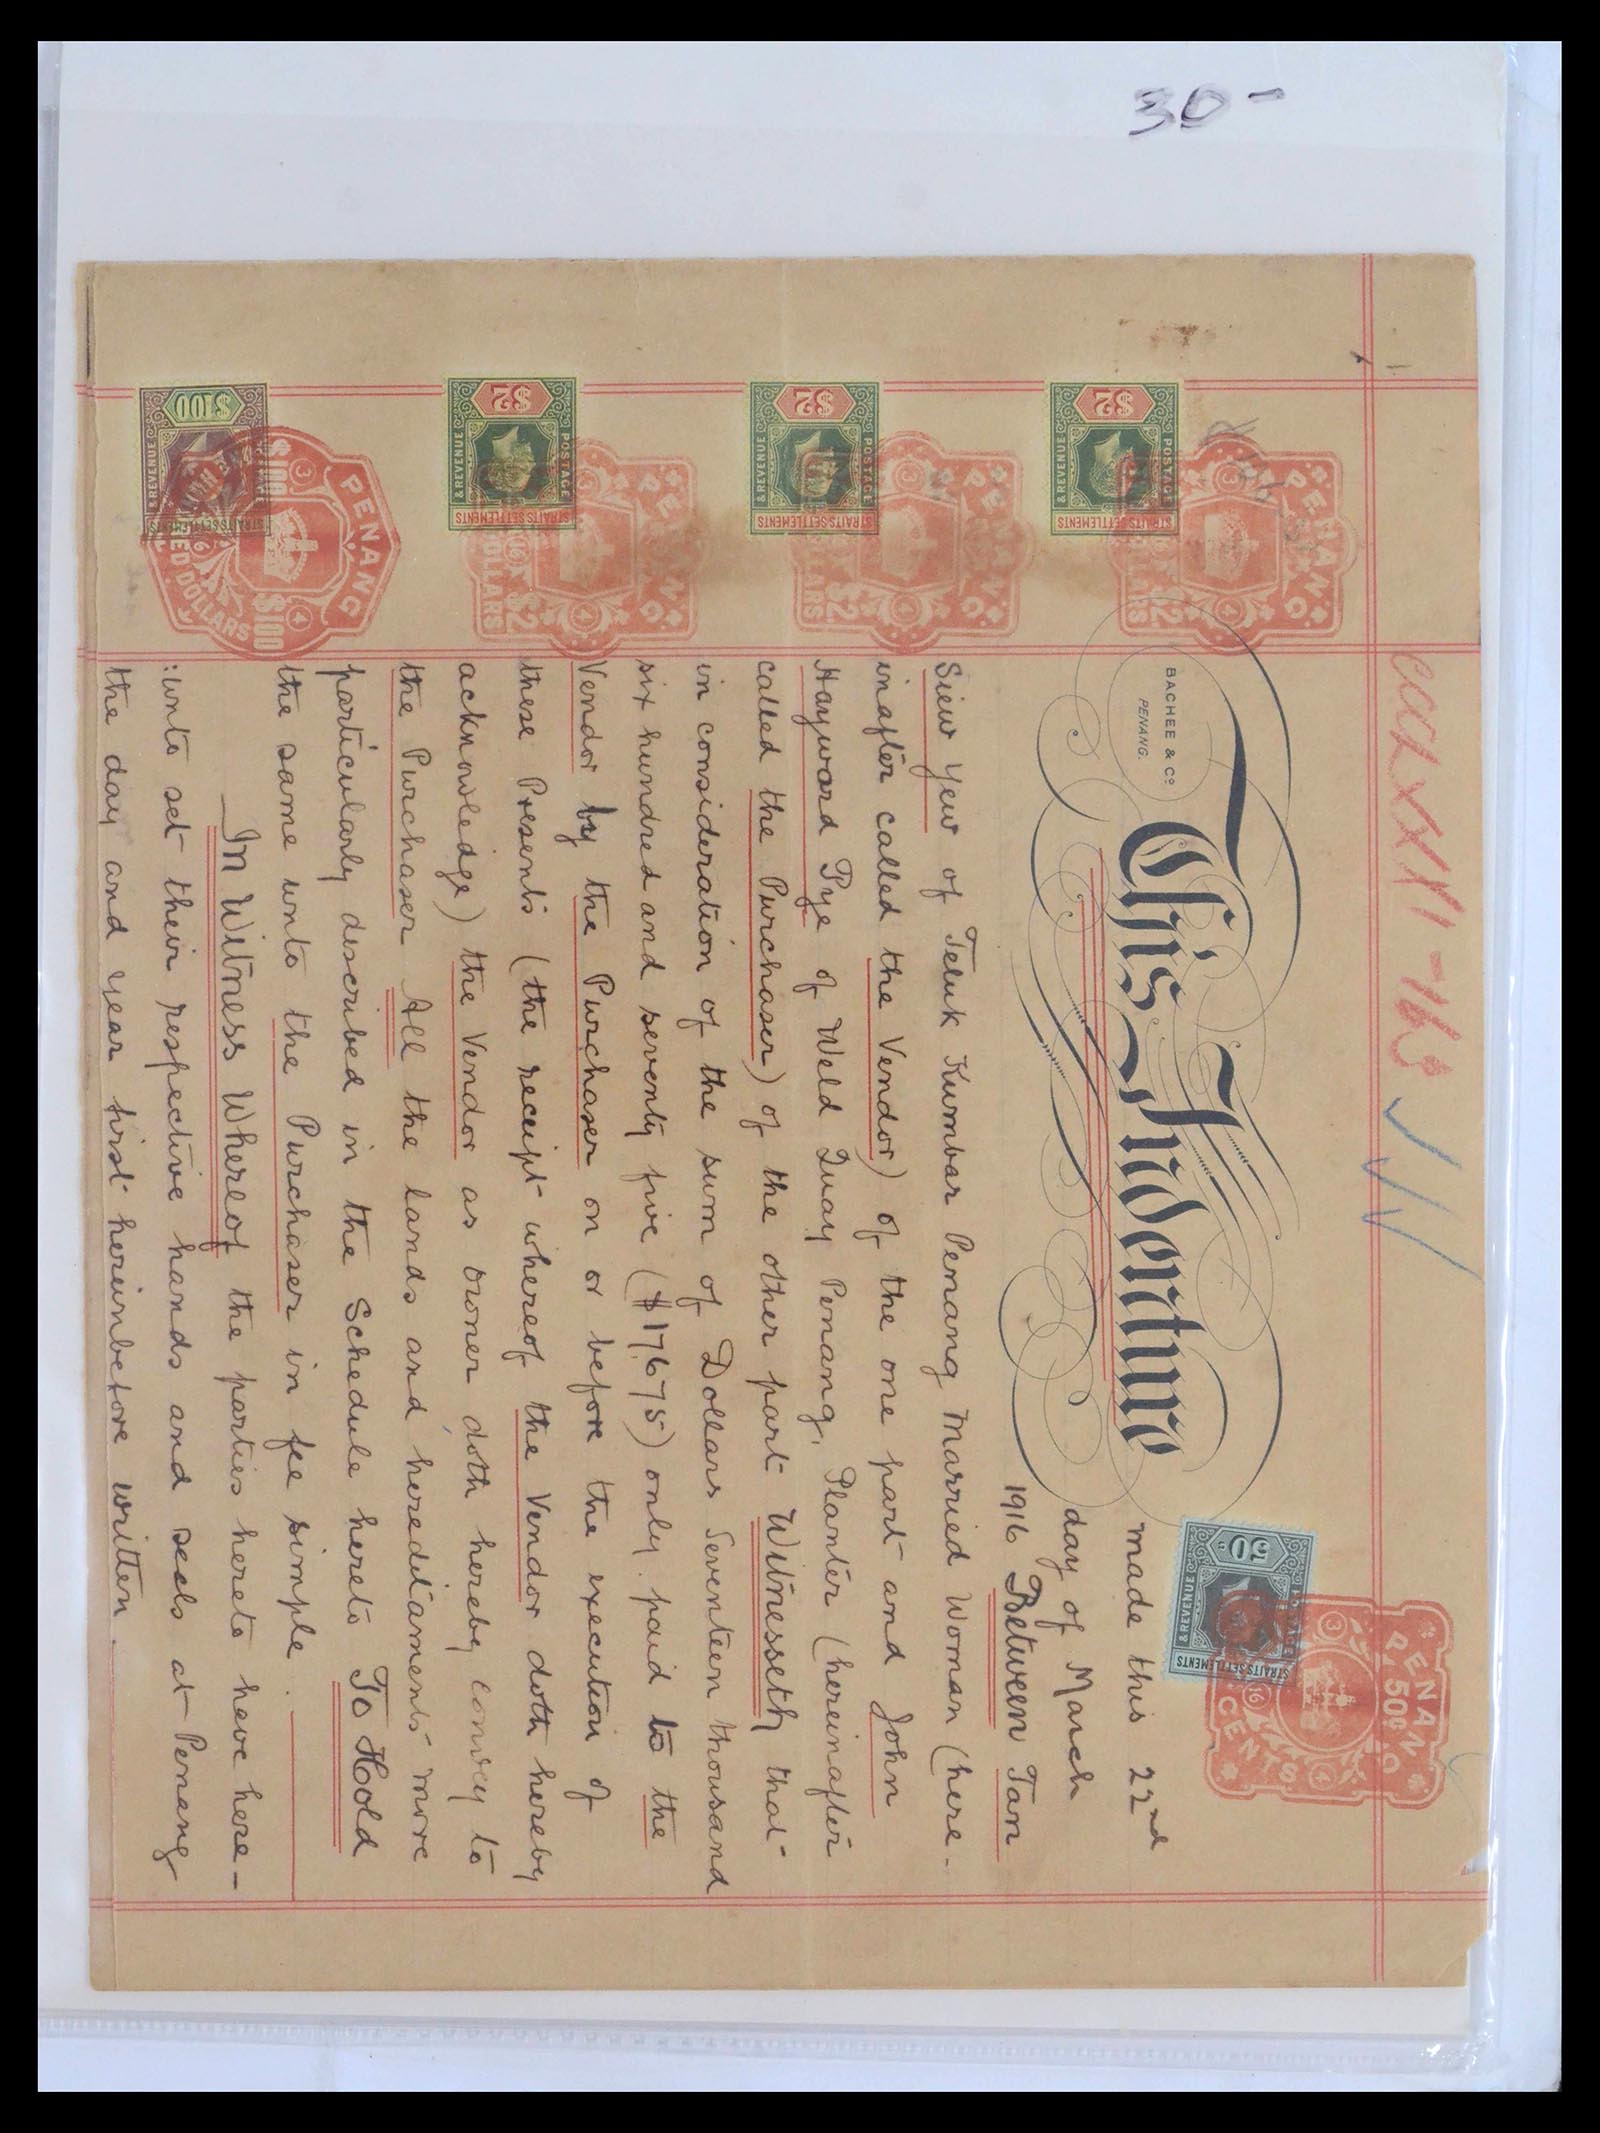 30-
CCCLXXXII-763
BACHEE & Co
PENANG.
This Indenture made this 22nd
day of March
1916 Between Tan
Siew Yew of Teluk Kumbar Penang Married Woman (here-
inafter called the Vendor) of the one part and John
Hayward Pye of Weld Quay Penang, Planter (hereinafter
called the Purchaser) of the other part Witnesseth that
in consideration of the sum of Dollars Seventeen thousand
six hundred and seventy five ($17675) only paid to the
Vendor by the Purchaser on or before the execution of
these Presents (the receipt whereof the Vendor doth hereby
acknowledge) the Vendor as owner doth hereby convey to
the Purchaser All the lands and hereditaments more
particularly described in the Schedule hereto To Hold
the same unto the Purchaser in fee simple.
In Witness Whereof the parties hereto have here-
:unto set their respective hands and seals at Penang
the day and year first hereinbefore written.
50c
POSTAGE
& REVENUE
STRAITS SETTLEMENTS
PENANG
50c
CENTS
$2
POSTAGE
& REVENUE
STRAITS SETTLEMENTS
PENANG
$2
DOLLARS
$2
POSTAGE
& REVENUE
STRAITS SETTLEMENTS
PENANG
$2
DOLLARS
$2
POSTAGE
& REVENUE
STRAITS SETTLEMENTS
PENANG
$2
DOLLARS
$100
POSTAGE
& REVENUE
STRAITS SETTLEMENTS
PENANG
$100
$100
HUNDRED DOLLARS